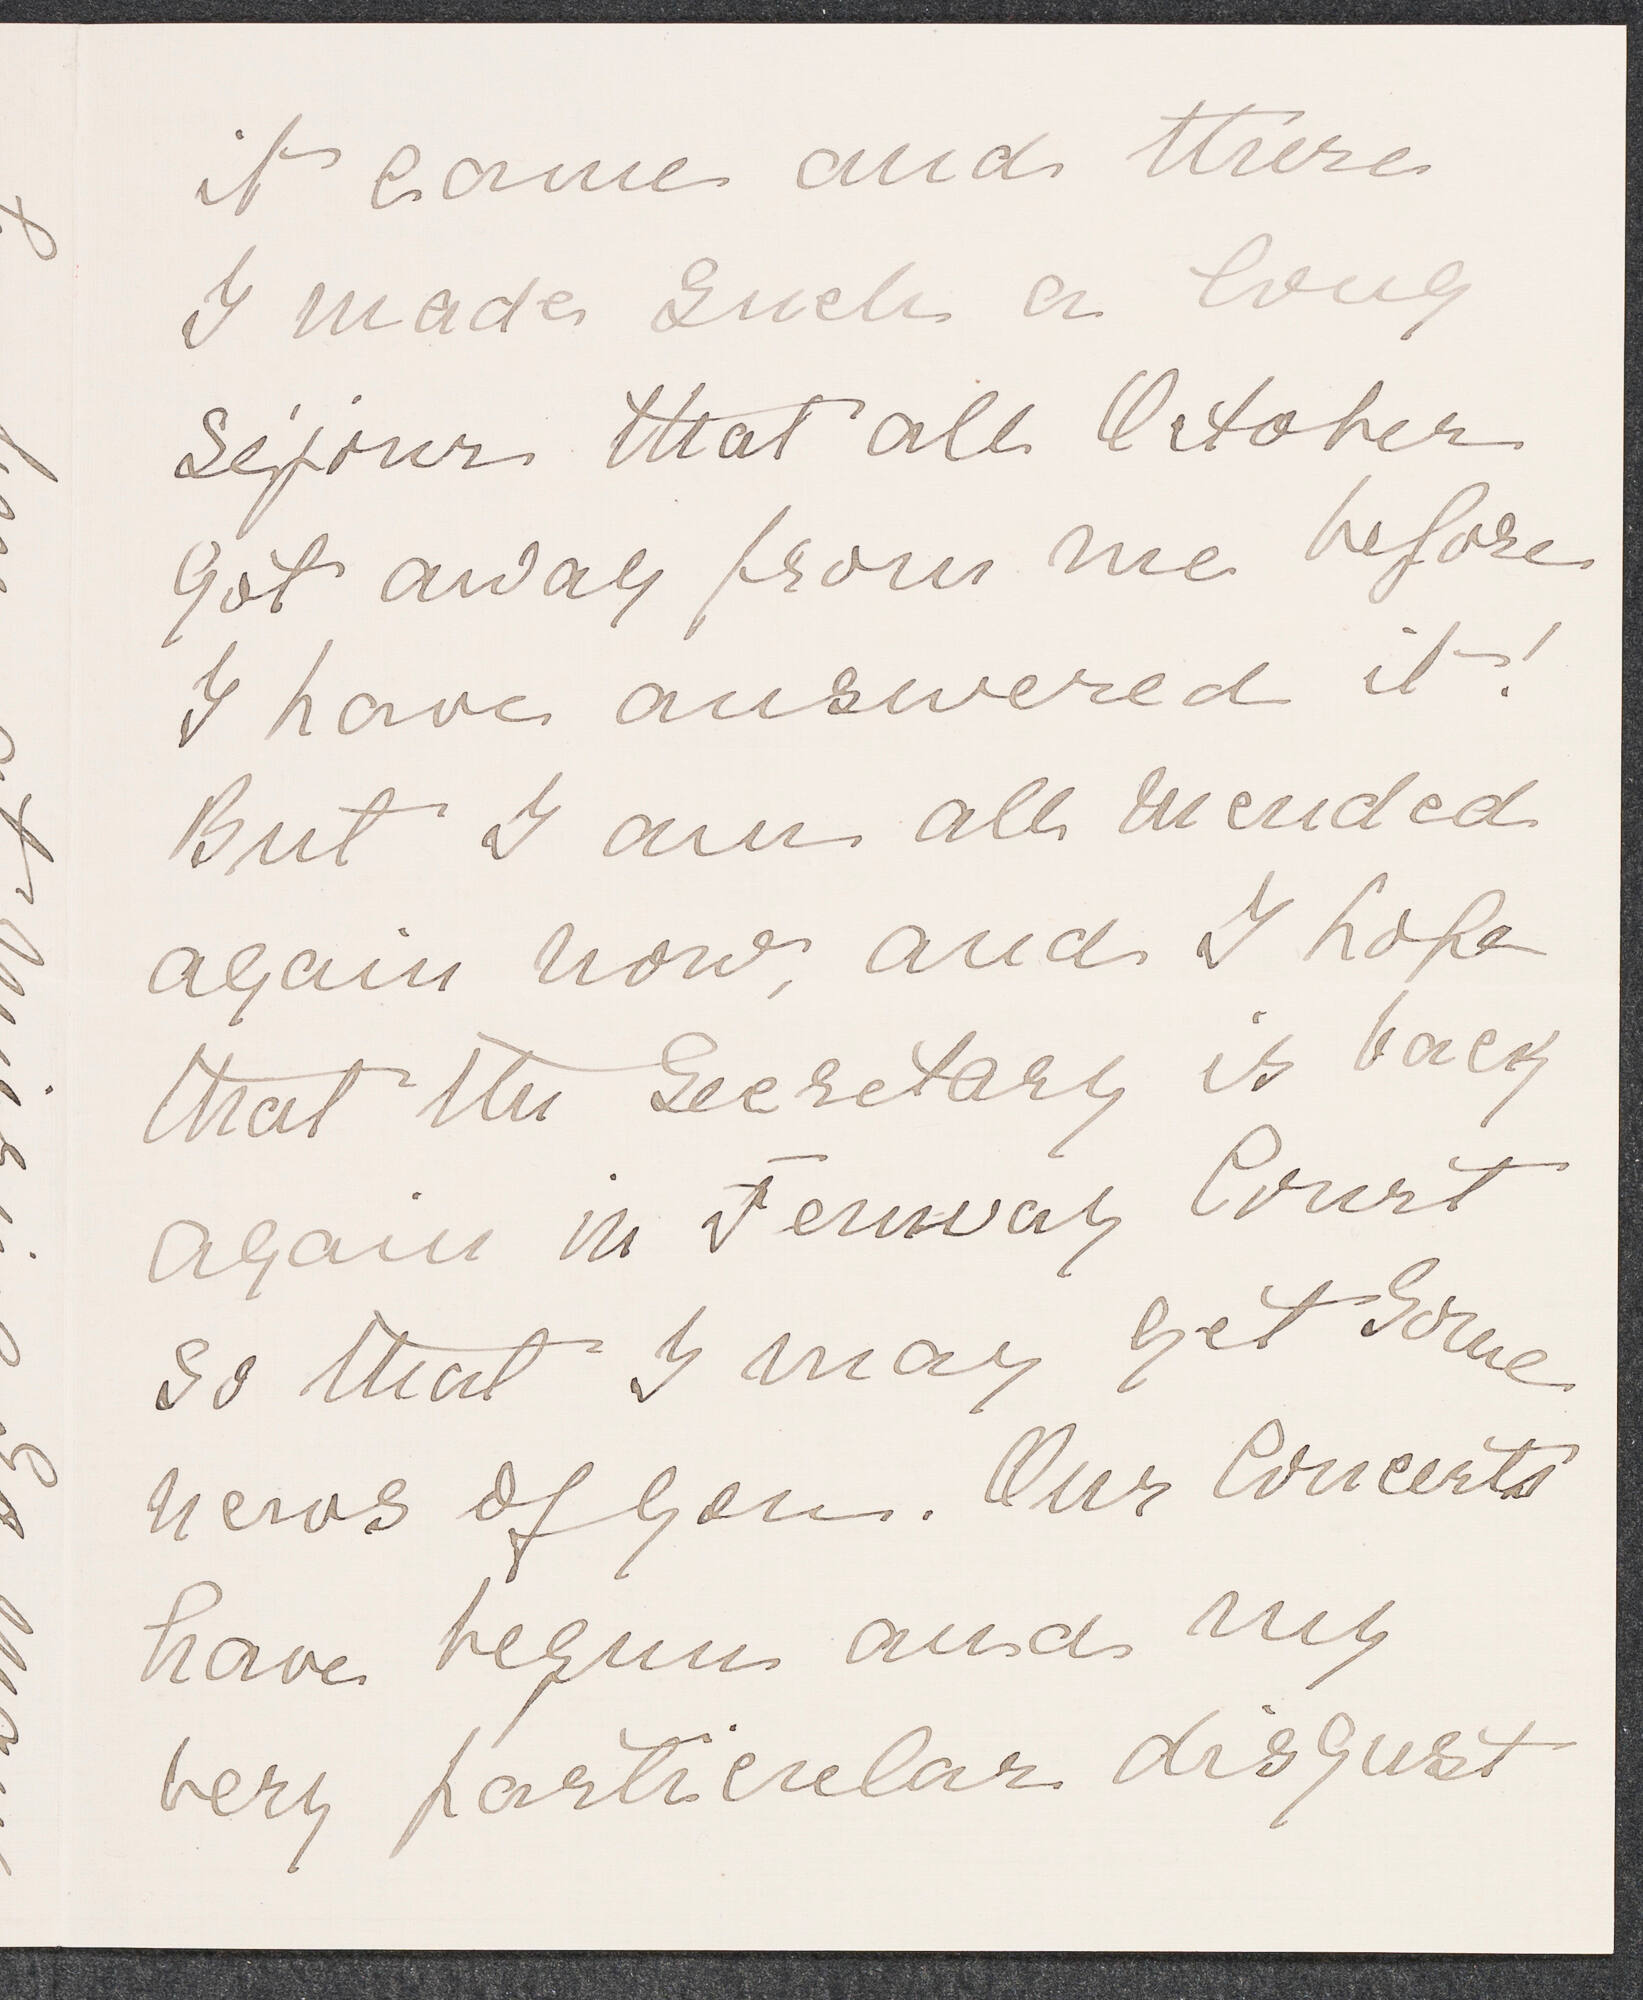 it came and there
I made such a long
séjour that all October
got away from me before
I have answered it!
But I am all mended
again now, and I hope
that the Secretary is back
again in Fenway Court
so that I may get some
news of you. Our Concerts
have begun and my
very particular disgust